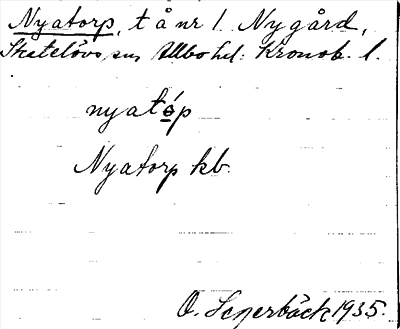 Nyatorp, t å nr 1 Nygård,
Skatelövs sn Allbo hd. Kronob. l.
nyatóp
Nyatorp kb.
O. 1935.